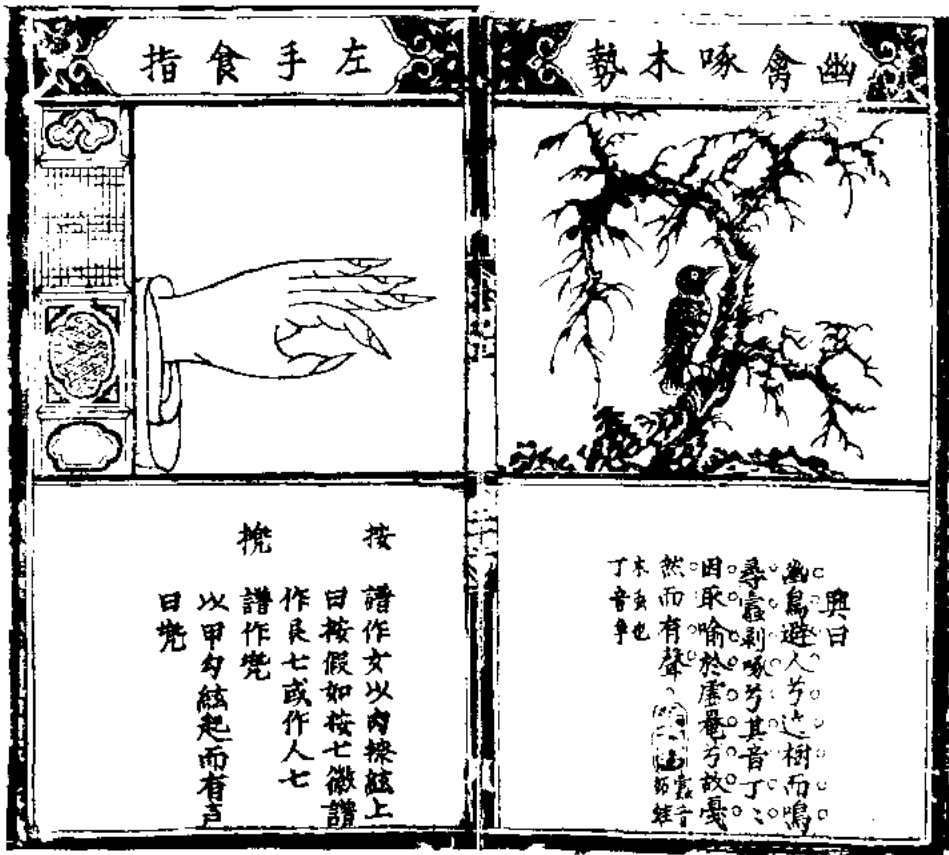 幽禽啄木勢
興曰
幽鳥避人兮遶樹而鳴
尋蠹剥啄兮其音丁丶
因取喻於虛罨兮故戛
然而有聲
蠹音
妬蛀
木虫也
丁音争
左手食指
按
譜作女以肉捺絃上
曰按假如按七徽譜
作艮七或作人七
挽
譜作
以甲勾絃起而有声
曰